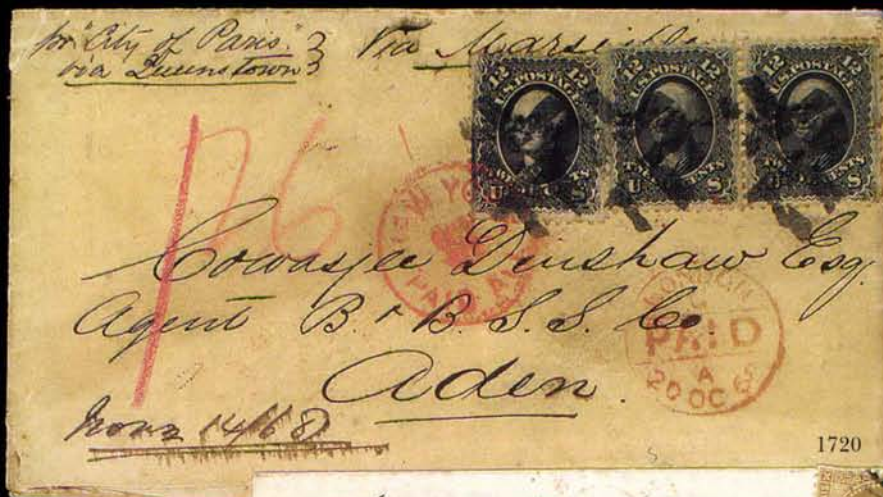 pr "City of Paris"
via Queenstown
Via Marseilles
12 12
U.S. POSTAGE
U S
12 12
U.S. POSTAGE
U S
12 12
U.S. POSTAGE
U S
26
NEW YO
PAID A
Cowasjee Dinshaw Esq.
Agent B. & B. S. S. Co
Aden.
LONDON
PAID
A
20 OC 6
Nov 14/68
1720